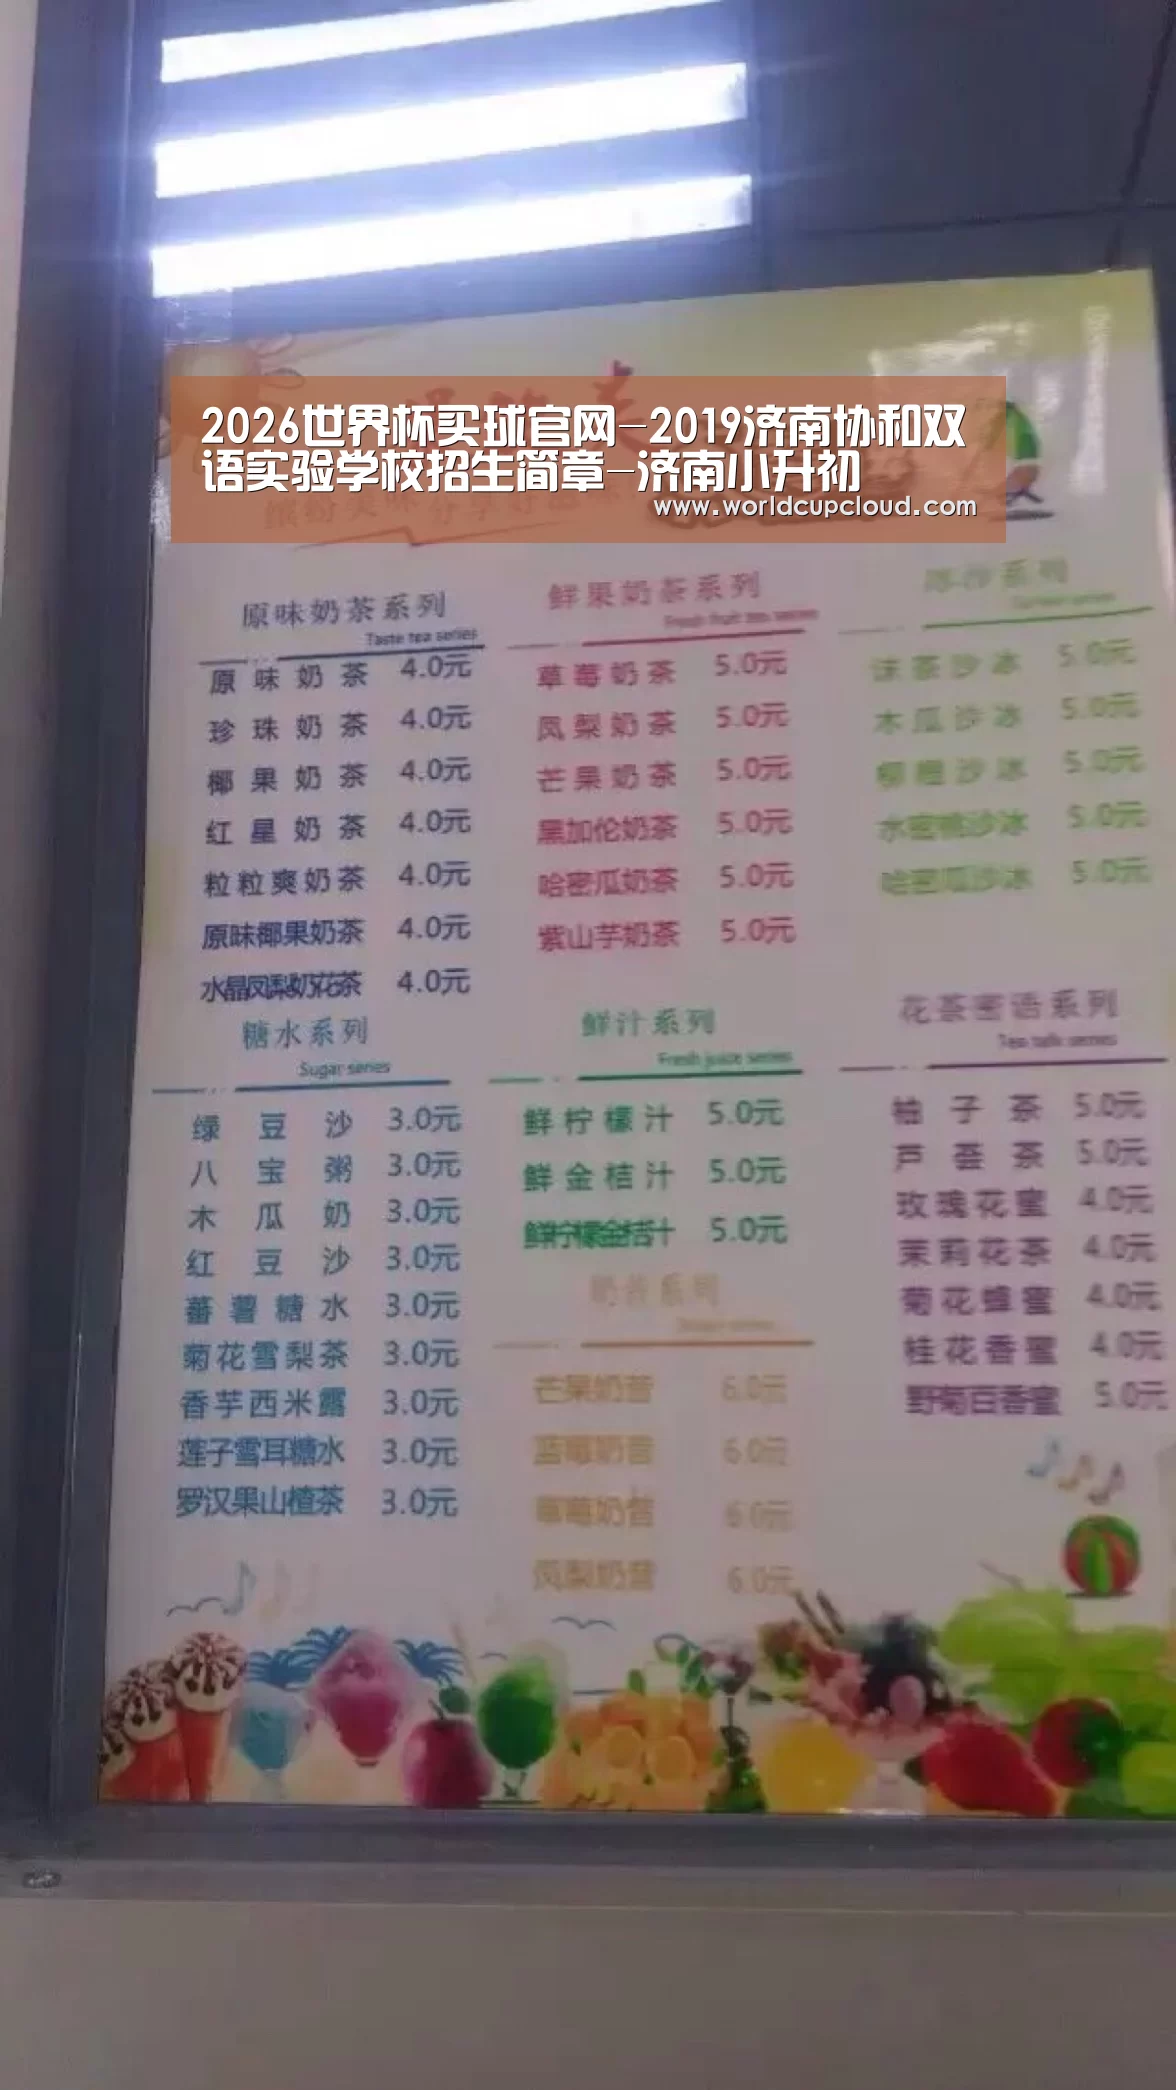 2026世界杯买球官网-2019济南协和双
语实验学校招生简章-济南小升初
www.worldcupcloud.com
原味奶茶系列
Taste tea series
原味奶茶 4.0元
珍珠奶茶 4.0元
椰果奶茶 4.0元
红星奶茶 4.0元
粒粒爽奶茶 4.0元
原味椰果奶茶 4.0元
水晶凤梨奶花茶 4.0元
鲜果奶茶系列
Fresh fruit tea series
草莓奶茶 5.0元
凤梨奶茶 5.0元
芒果奶茶 5.0元
黑加伦奶茶 5.0元
哈密瓜奶茶 5.0元
紫山芋奶茶 5.0元
系列
series
沫茶沙冰 5.0元
木瓜沙冰 5.0元
柳橙沙冰 5.0元
水密桃沙冰 5.0元
哈密瓜沙冰 5.0元
糖水系列
Sugar series
绿豆沙 3.0元
八宝粥 3.0元
木瓜奶 3.0元
红豆沙 3.0元
蕃薯糖水 3.0元
菊花雪梨茶 3.0元
香芋西米露 3.0元
莲子雪耳糖水 3.0元
罗汉果山楂茶 3.0元
鲜汁系列
Fresh juice series
鲜柠檬汁 5.0元
鲜金桔汁 5.0元
鲜柠檬金桔汁 5.0元
奶昔系列
芒果奶昔 6.0元
蓝莓奶昔 6.0元
草莓奶昔 6.0元
凤梨奶昔 6.0元
花茶密语系列
Tea talk series
柚子茶 5.0元
芦荟茶 5.0元
玫瑰花蜜 4.0元
茉莉花茶 4.0元
菊花蜂蜜 4.0元
桂花香蜜 4.0元
野菊百香蜜 5.0元